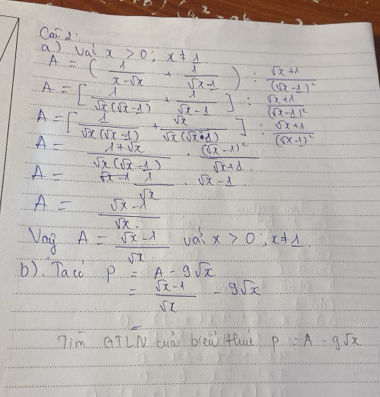 Câu 2:
a) Với x > 0; x ≠ 1
A = ( 1/(x-√x) + 1/(√x-1) ) : (√x+1)/(√x-1)²
A = [ 1/(√x(√x-1)) + 1/(√x-1) ] : (√x+1)/(√x-1)²
A = [ 1/(√x(√x-1)) + √x/(√x(√x+1)) ] : (√x+1)/(√x-1)²
A = (1+√x)/(√x(√x-1)) . (√x-1)²/(√x+1).
A = 1/√x . √x-1.
A = (√x-1)/√x.
Vậy A = (√x-1)/√x với x > 0; x ≠ 1.
b). Ta có P = A - 9√x
= (√x-1)/√x - 9√x
=
Tìm GTLN của biểu thức P = A - 9√x